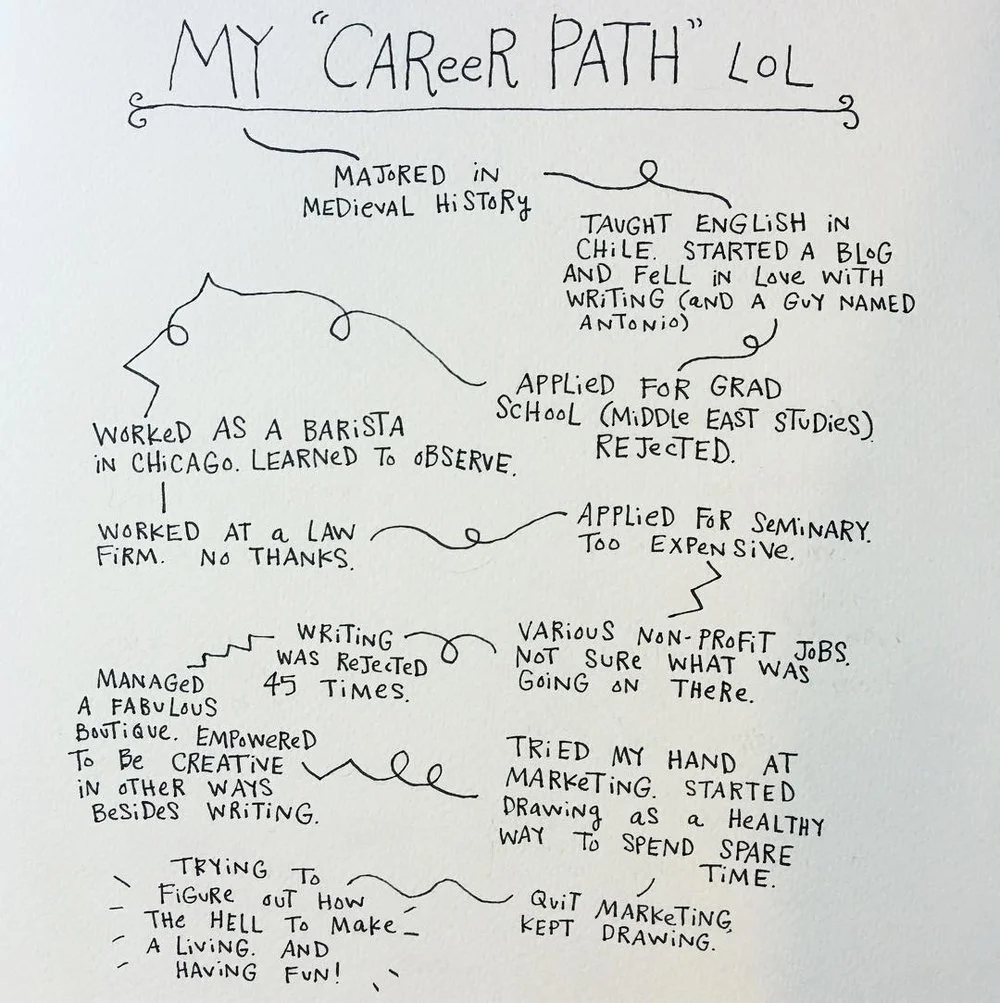 MY "CAReeR PATH" LOL
MAJORED IN
MEDiEVAL HiSTORy
TAUGHT ENGLiSH iN
CHiLE. STARTED A BLOG
AND FeLL iN Love WiTH
WRiTiNG (aND A GUY NAMED
ANTONiO)
APPLiED FOR GRAD
SCHOOL (MiDDLe EAST STUDieS).
REJeCTED.
WORKeD AS A BARiSTA
iN CHiCAGO. LEARNeD TO OBSERVE.
WORKED AT a LAW
FiRM. NO THANKS.
APPLiED FOR SeMiNARY.
TOO EXPENSiVe.
VARiOUS NON-PROFiT JOBS.
NOT SURe WHAT WAS
GOiNG ON THeRe.
WRiTiNG
WAS ReJeCTED
45 TiMES.
MANAGeD
A FABULOUS
BOUTiQUe. EMPOWeReD
TO Be CREATiVe
iN OTHeR WAYS
BeSiDeS WRiTiNG.
TRiED MY HAND AT
MARKeTiNG. STARTED
DRAWiNg aS a HeALTHY
WAY TO SPEND SPARE
TiME.
QUiT MARKeTiNG,
KEPT DRAWiNG.
TRYiNG TO
FiGURe OUT HOW
THe HELL TO Make
A LiViNG. AND
HAViNG FUN!